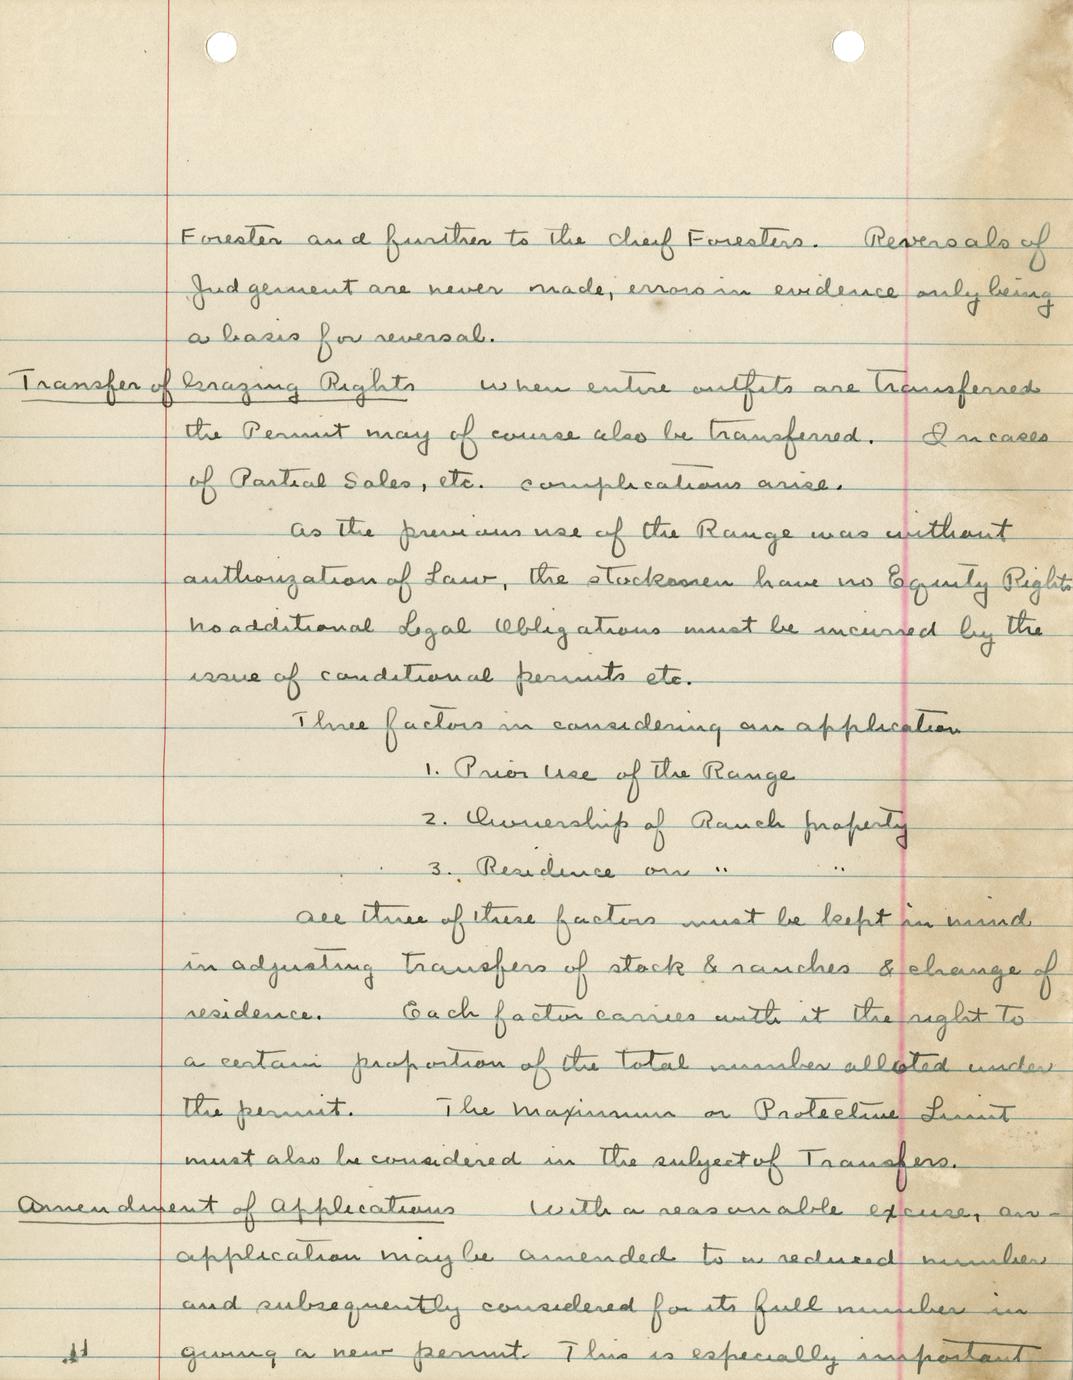 Forester and further to the cheif Foresters. Reversals of
Judgement are never made, errors in evidence only being
a basis for reversal.
Transfer of Grazing Rights when entire outfits are transferred
the Permit may of course also be transferred. In cases
of Partial Sales, etc. complications arise.
As the previous use of the Range was without
authorization of Law, the stockmen have no Equity Rights
No additional Legal Obligations must be incurred by the
issue of conditional permits etc.
Three factors in considering an application
1. Prior Use of the Range
2. Ownership of Ranch property
3. Residence on " "
All three of these factors must be kept in mind
in adjusting transfers of stock & ranches & change of
residence. Each factor carries with it the right to
a certain proportion of the total number alloted under
the permit. The Maximum or Protective Limit
must also be considered in the subject of Transfers.
Amendment of Applications With a reasonable excuse, an-
application may be amended to a reduced number
and subsequently considered for its full number in
giving a new permit. This is especially important